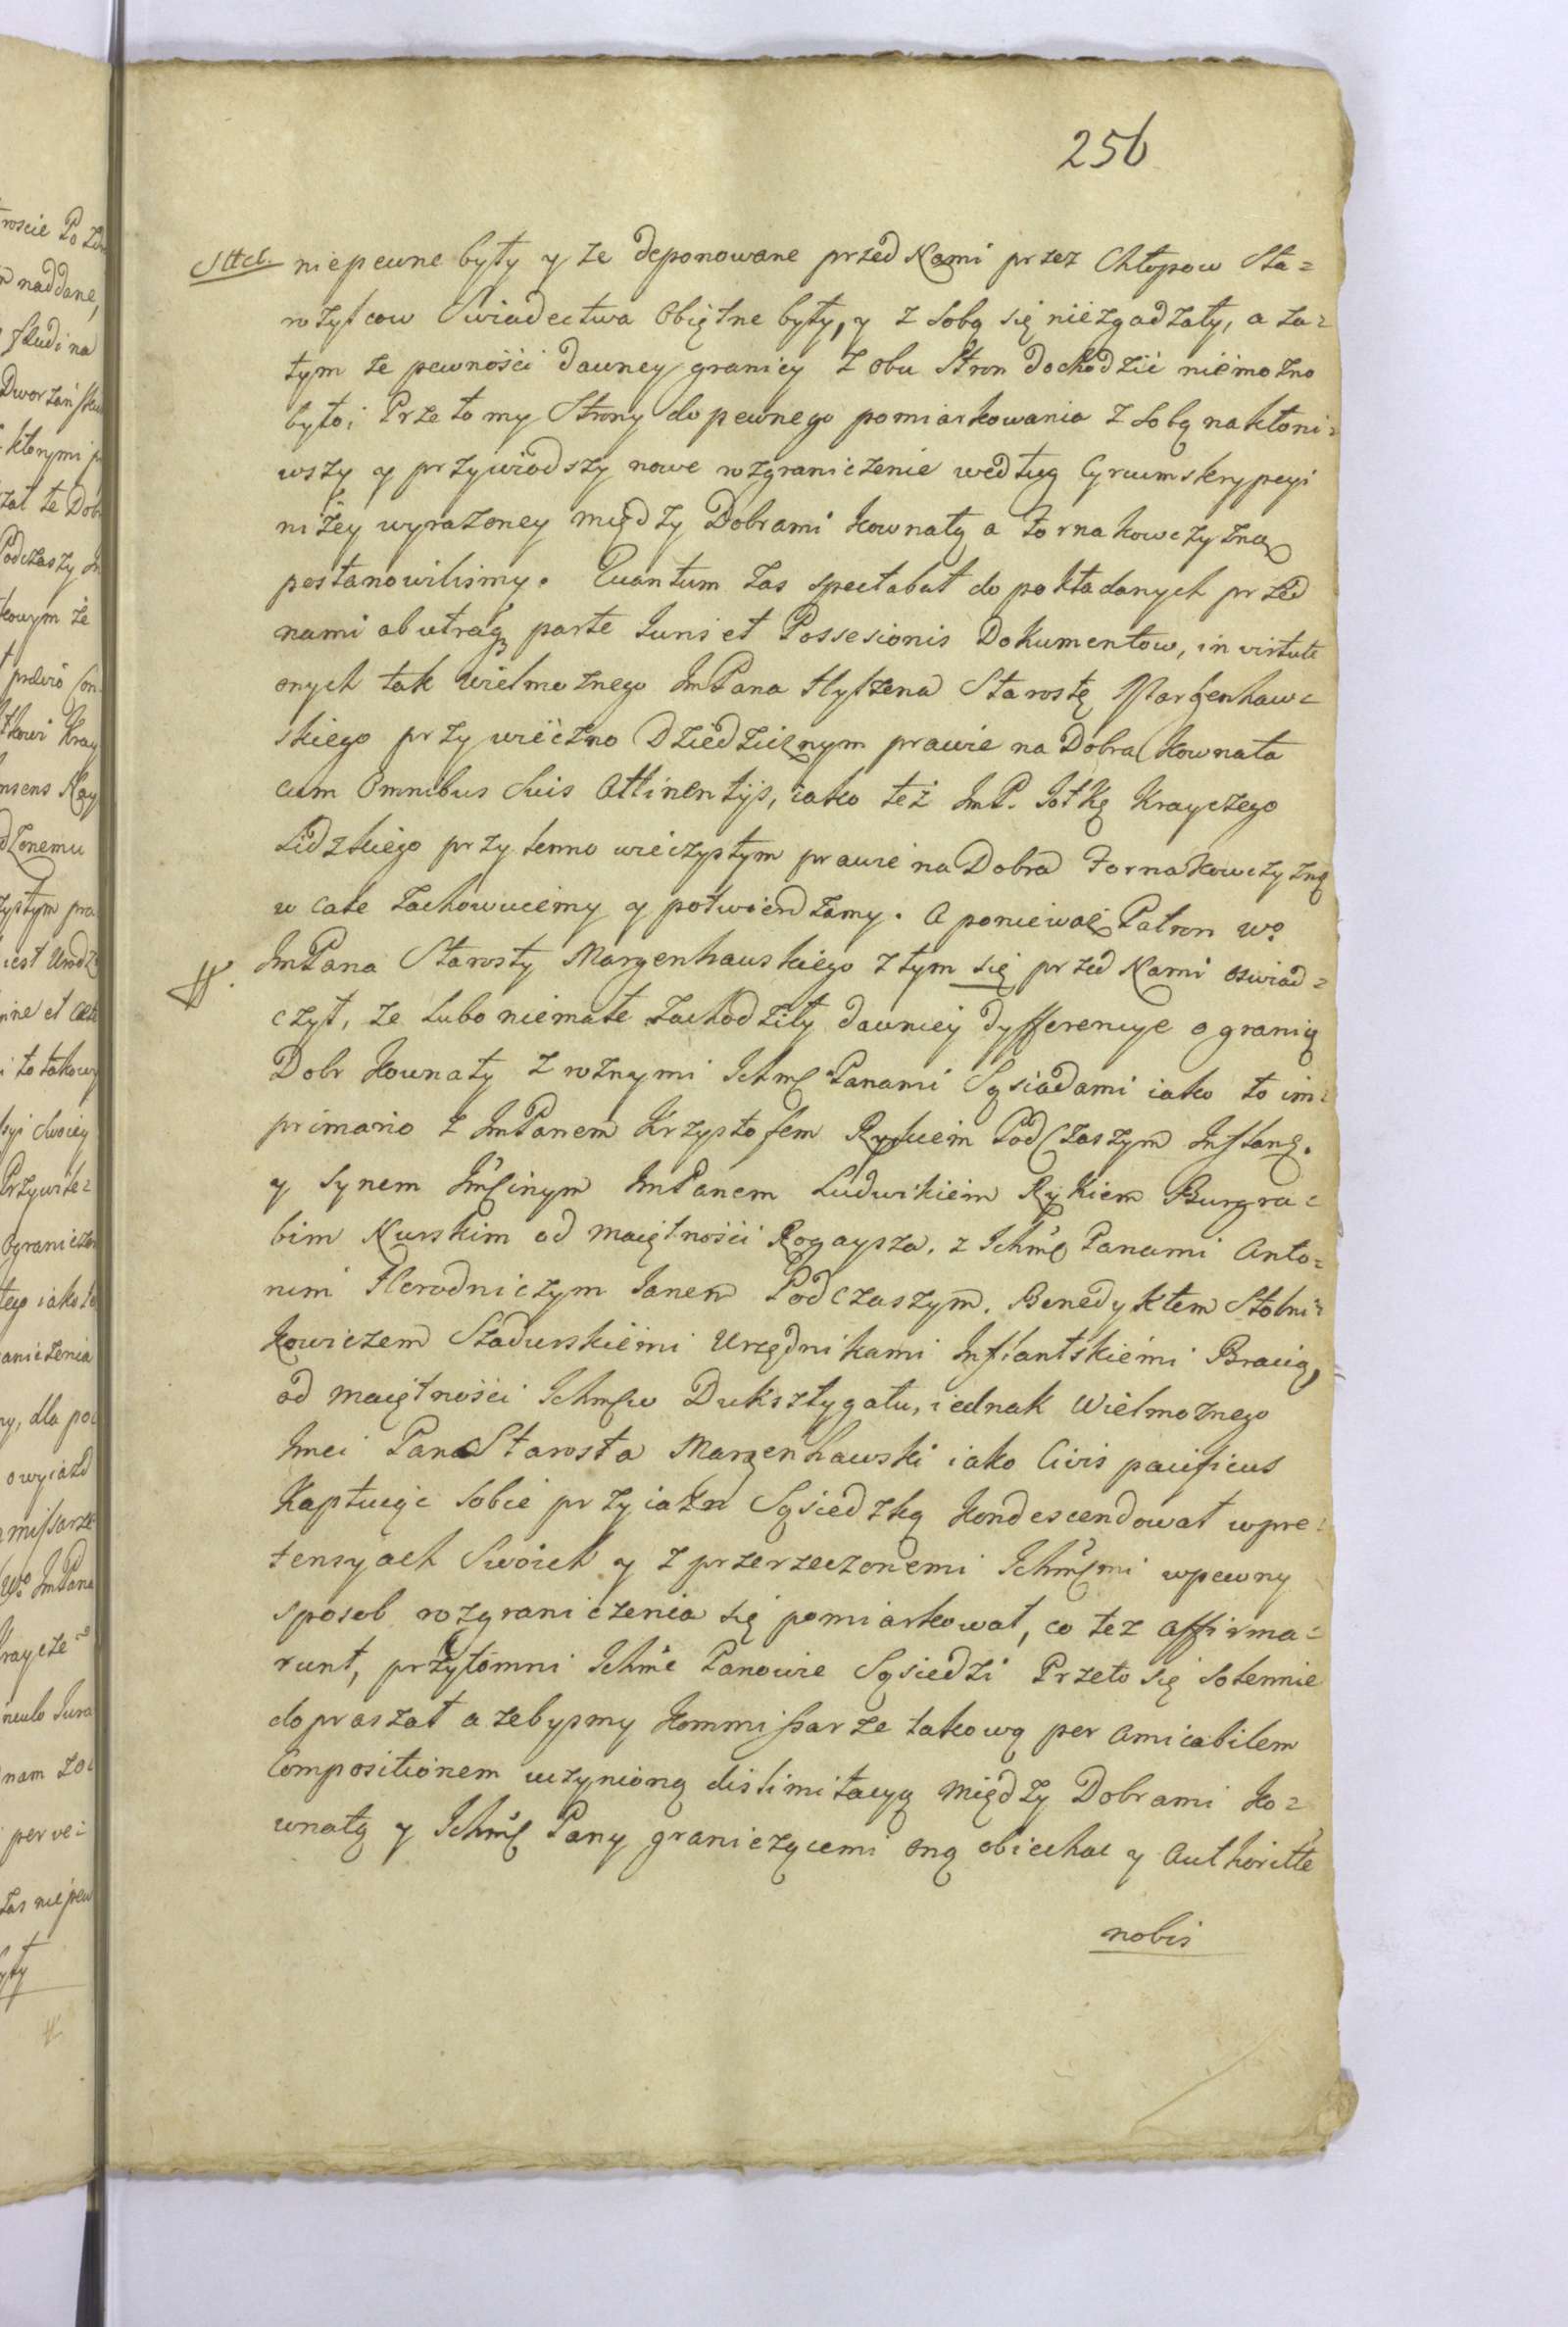 256
niepewne były y że deponowane przed Nami przez Chłopow Sta=
rożyłcow Swiadectwa Obiętne były, y z sobą się niezgadzały, a za=
tym że pewności dawney granicy z obu Stron dochodzić niemożno
było; Przeto my Strony do pewnego pomiarkowania z sobą nakłoni=
wszy y przywiodszy nowe rozgraniczenie według Cyrcumskrypcyi
niżey wyrażoney między Dobrami Kownatą a Fornakowczyzną
postanowilismy. Quantum zas spectabat do pokładanych przed
nami ab utraq parte Juris et Possesionis Dokumentow, in virtute
onych tak Wielmożnego JmPana Hylzena Starostę Margenhaw=
skiego przy wieczno Dziedzicznym prawie na Dobra Kownata
cum Omnibus Suis Attinentijs, iako też JmP. Kraycżego
Lidzkiego przy lenno wieczystym prawie na Dobra Fornakowczyznę
w cale zachowuiemy y potwierdzamy. A poniewaz Patron Wo
JmPana Starosty Margenhauskiego z tym się przed Nami oswiad=
czył, że lubo niemałe zachodziły dawniey dyfferencye o granicę
Dobr Kownaty z rożnymi Ichmc Panami Sąsiadami iako to im=
primario z JmPanem Krzysztofem Rykiem Podczaszym Inflant.
y Synem Jmcinym JmPanem Ludwikiem Rykiem Burgra=
bim Nurskim od maiętności Rogaysza, z Ichmc Panami Anto=
nim Horodniczym Janem Podczaszym, Benedyktem Stolni=
kowiczem Szadurskiemi Urzędnikami Inflantskiemi Bracią,
od maiętności Ichmcw Duksztygału, iednak Wielmożnego
Jmci Pana Starosta Margenhawski iako Civis pacificus
Kaptuiąc sobie przyiazn Sąsiedzką kondescendował w pre=
tensyach Swoich y z przerzeczonemi Ichmcmi w pewny
sposob rozgraniczenia się pomiarkował, co tez affirma=
runt, przytomni Ichmc Panowie Sąsiedzi Przeto się solennie
dopraszał azebysmy Kommissarze takową per amicabilem
Compositionem uczynioną dislimitacyą między Dobrami Ko=
wnatą y Ichmc Pany graniczącemi oną obiechac y Authoritte
nobis